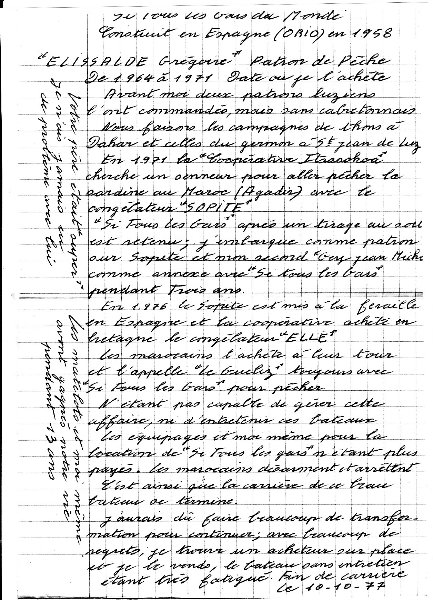 Si Tous les Gars du Monde
Construit en Espagne (ORIO) en 1958
"ELISSALDE Grégoire" Patron de Pêche
De 1964 à 1971 Date où je l'achète
Avant moi deux patrons luziens
l'ont commandés, mais sans cabretonnais
Nous faisons les campagnes de thons à
Dakar et celles du germon à St jean de Luz
En 1971 la "Coopérative Itsasokoa"
cherche un senneur pour aller pêcher la
sardine au Maroc (Agadir) avec le
congélateur "SOPITE"
"Si Tous les Gars" après un tirage au sort
est retenu; j'embarque comme patron
sur Sopite et mon second "Guy jean Miche
comme annexe avec "Si tous les Gars"
pendant Trois ans.
En 1976 le Sopite est mis à la feraille
en Espagne et la coopérative achète en
bretagne le congélateur "ELLE"
les marocains l'achète à leur tour
et l'appelle "le Gueliz" toujours avec
"Si Tous les Gars" pour pêcher
N'étant pas capable de gérer cette
affaire, ni d'entretenir ces bateaux
les équipages et moi même pour la
location de "Si Tous les gars" n'étant plus
payés. les marocains désarment et arrêttent
C'est ainsi que la carrière de ce beau
bateau se termine.
j'aurais dû faire beaucoup de transfor-
mation pour continuer; avec beaucoup de
regrets, je trouve un acheteur sur place
et je le vends, le bateau sans entretien
étant très fatigué. Fin de carrière
le 10-10-77
Votre père était "super"
Je n'ais jamais eu
de problème avec lui.
Les matelots et moi même
avont gagnés notre vie
pendant 13 ans